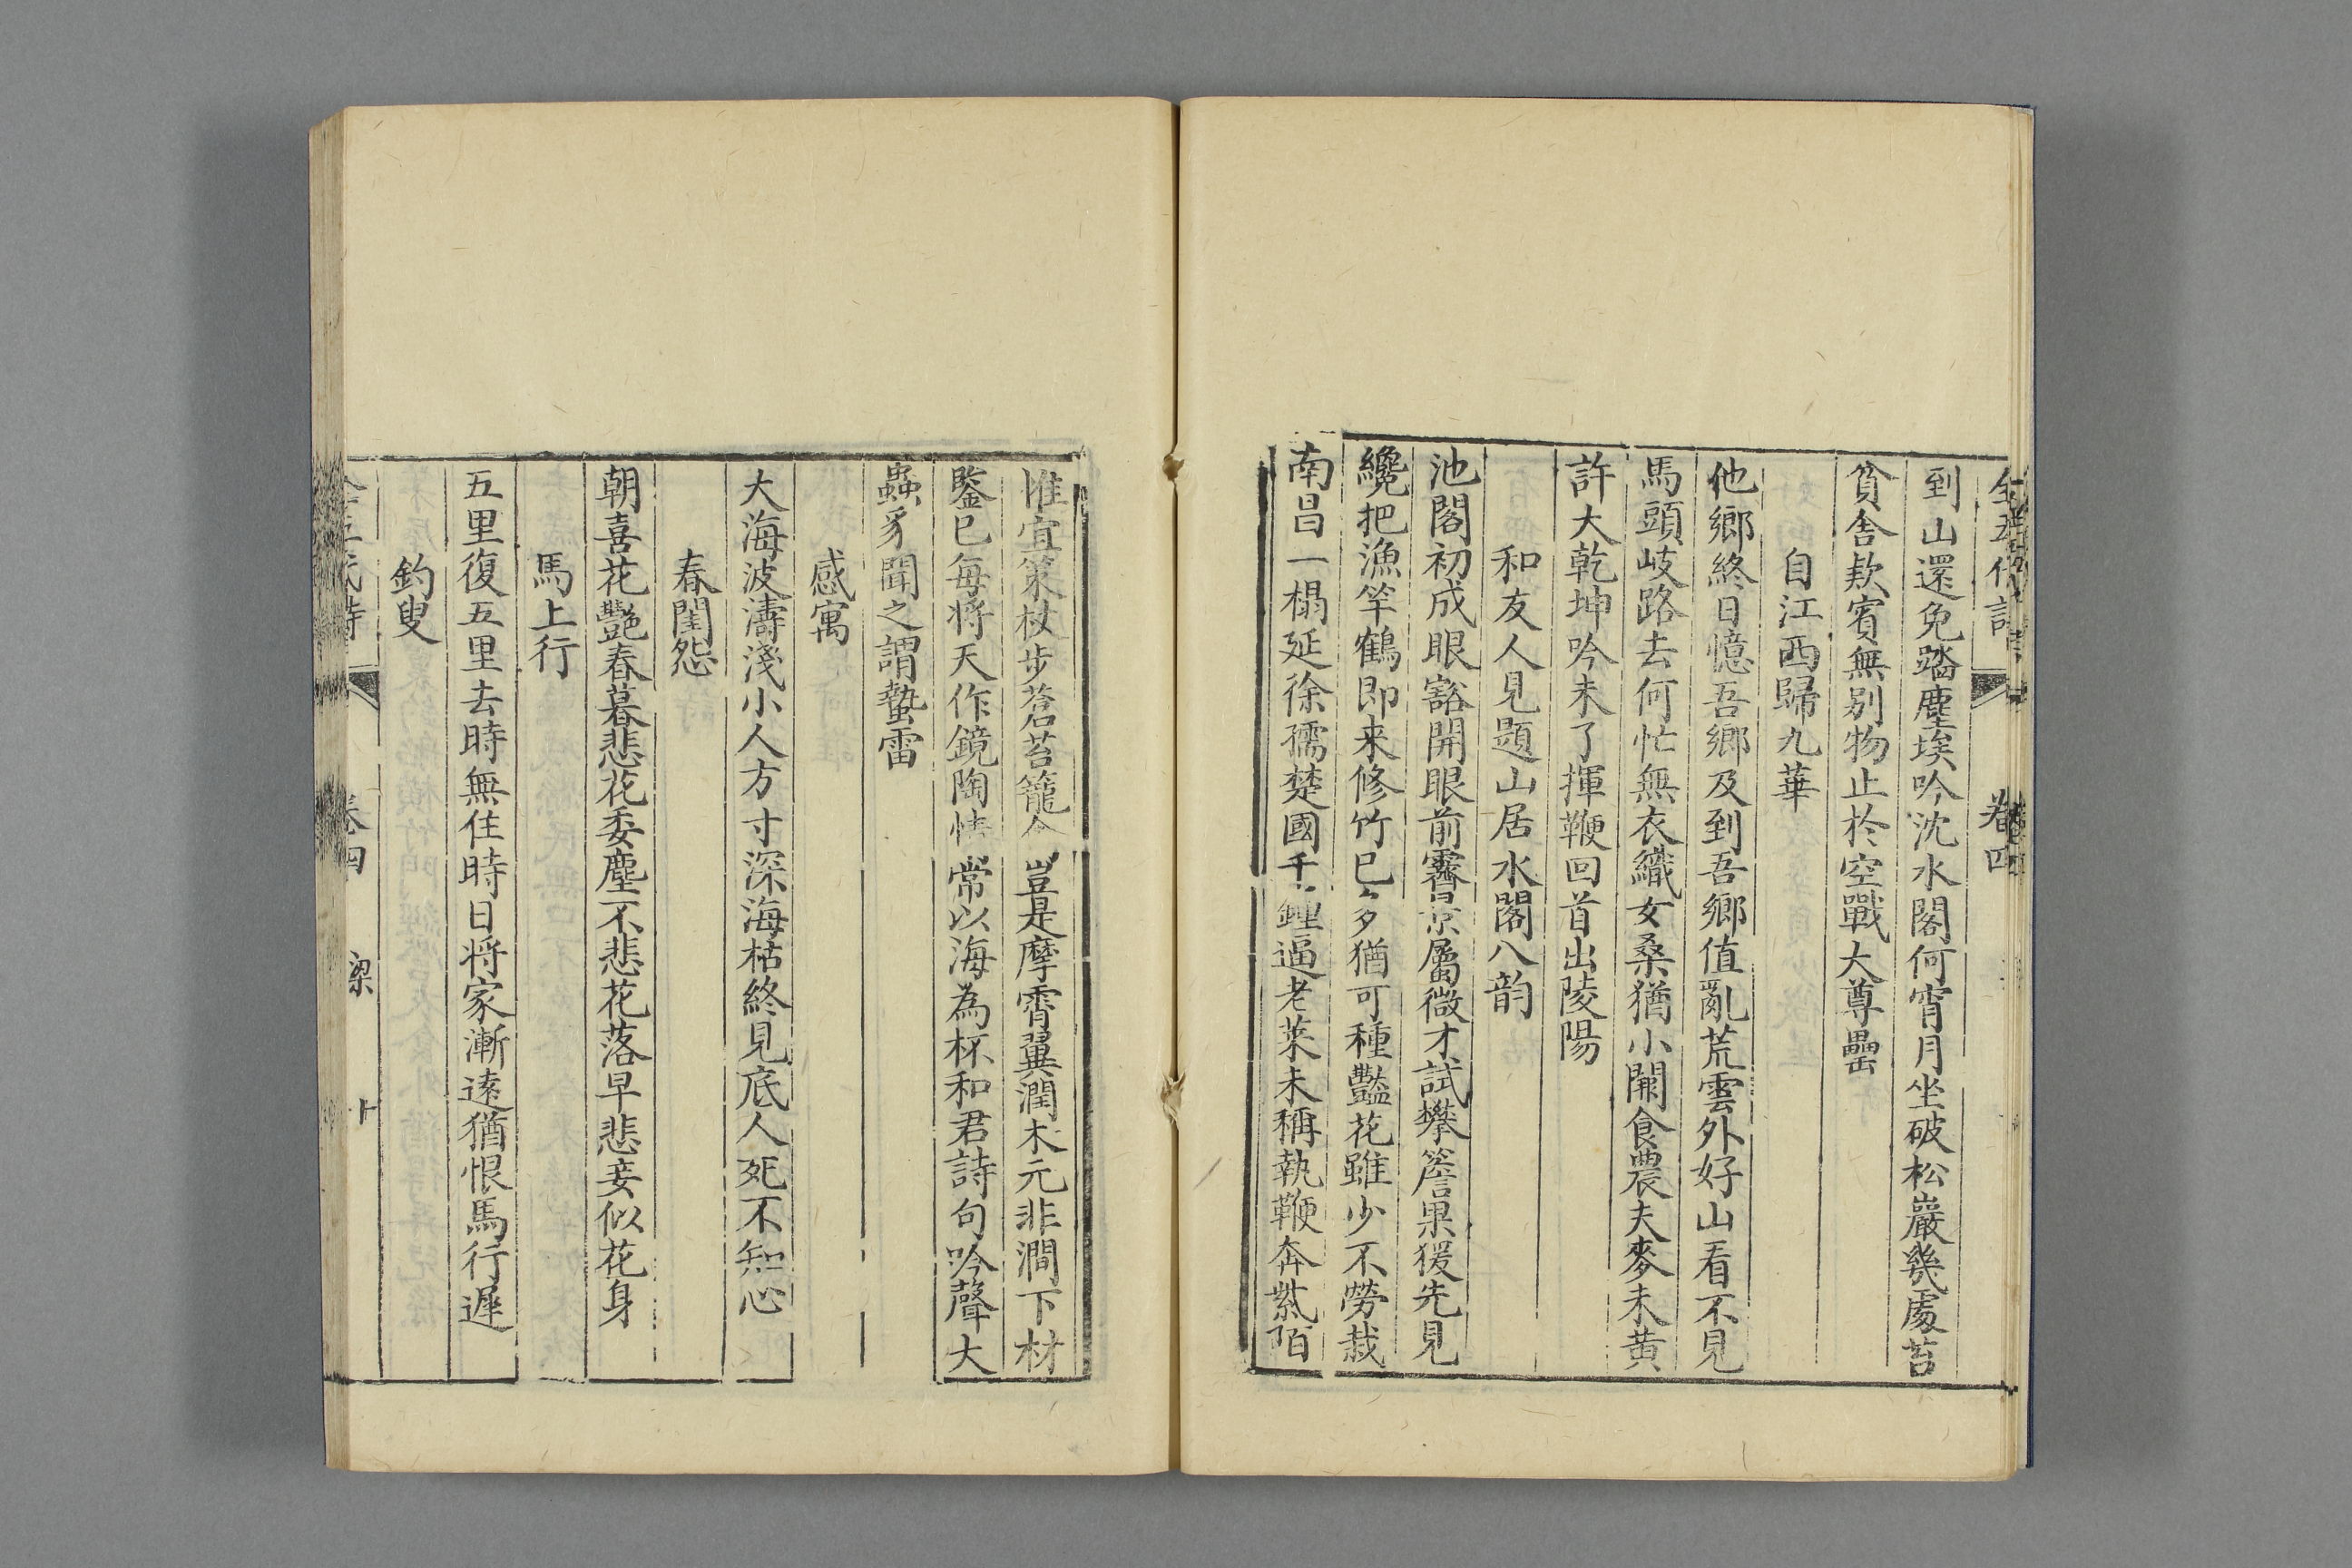 全五代詩 卷四
到山還免踏塵埃吟沈水閣何宵月坐破松巖幾處苔
貧舍欵賓無別物止於空戰大尊罍
自江西歸九華
他鄉終日憶吾鄉及到吾鄉值亂荒雲外好山看不見
馬頭岐路去何忙無衣織女桑猶小闕食農夫麥未黄
許大乾坤吟未了揮鞭回首出陵陽
和友人見題山居水閣八韵
池閣初成眼豁開眼前霽景屬微才試攀簷果猨先見
纔把漁竿鶴即来修竹已多猶可種艷花雖少不勞栽
南昌一榻延徐孺楚國千鍾逼老莱未稱執鞭奔紫陌
惟宜策杖步蒼苔籠禽豈是摩霄翼潤木元非澗下材
鑒已每将天作鏡陶情常以海為杯和君詩句吟聲大
蟲豸聞之謂蟄雷
感寓
大海波濤淺小人方寸深海枯終見底人死不知心
春閨怨
朝喜花艷春暮悲花委塵不悲花落早悲妾似花身
馬上行
五里復五里去時無住時日将家漸逺猶恨馬行遲
釣叟
全五代詩 卷四 梁 十